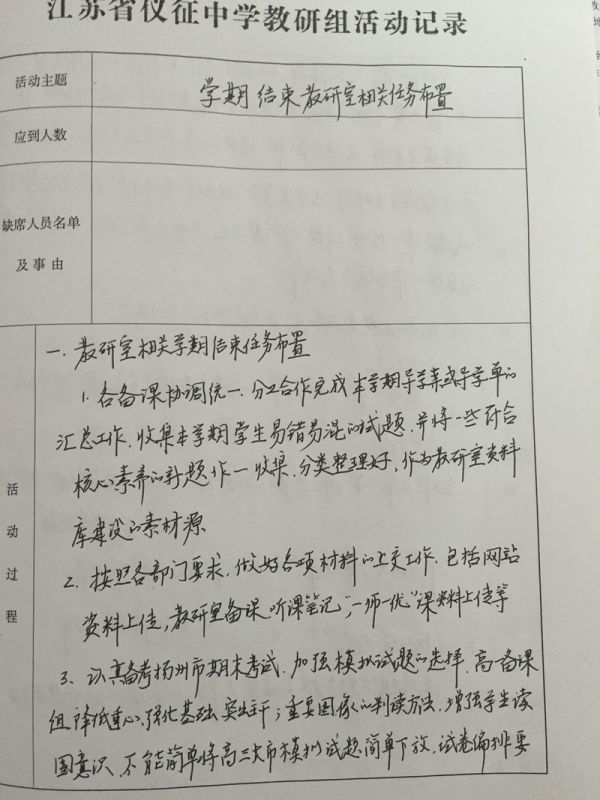 江苏省仪征中学教研组活动记录
活动主题
学期结束教研室相关任务布置
应到人数
缺席人员名单
及事由
活动过程
一、教研室相关学期结束任务布置
1. 各备课协调统一、分工合作完成本学期导学案或导学单的
汇总工作、收集本学期学生易错易混的试题、并将一些符合
核心素养的新题作一收集、分类整理好、作为教研室资料
库建设的素材源
2、按照各部门要求、做好各项材料的上交工作、包括网站
资料上传，教研室备课听课笔记，"一师一优"课料上传等
3、认真备考扬州市期末考试、加强模拟试题的选择、高一备课
组降低重心、强化基础、突出主干；重要图像的判读方法、增强学生读
图意识、不能简单将高三大市模拟试题简单下放、试卷偏排要